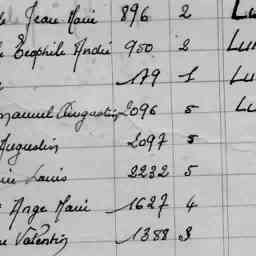 Jean Marie 896 2 Lu
Théophile André 950 2 Lu
179 1 Lu
manuel Augustin 2096 5 Lu
Augustin 2097 5
Louis 2232 5
Ange Marie 1627 4
Valentin 1388 3